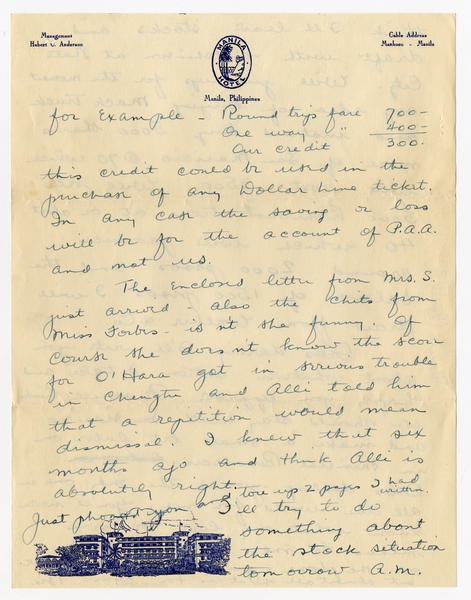 Management
Hubert v. Anderson
MANILA HOTEL
Manila, Philippines
Cable Address
Manhotu - Manila
for Example - Round trips fare 700-
One way " 400-
Our credit 300-
this credit could be used in the
purchase of any Dollar Line ticket.
In any case the saving or loss
will be for the account of P.A.A.
and not us.
The Enclosed letter from Mrs. S.
just arrived - also the chits from
Miss Forbes - is n't she funny. Of
course she does n't know the score
for O'Hara got in serious trouble
in Chengtu and Alli told him
that a repetition would mean
dismissal. I knew that six
months ago and think Alli is
absolutely right.
Just phoned you and tore up 2 pages I had written.
I'll try to do
something about
the stock situation
tomorrow A.M.